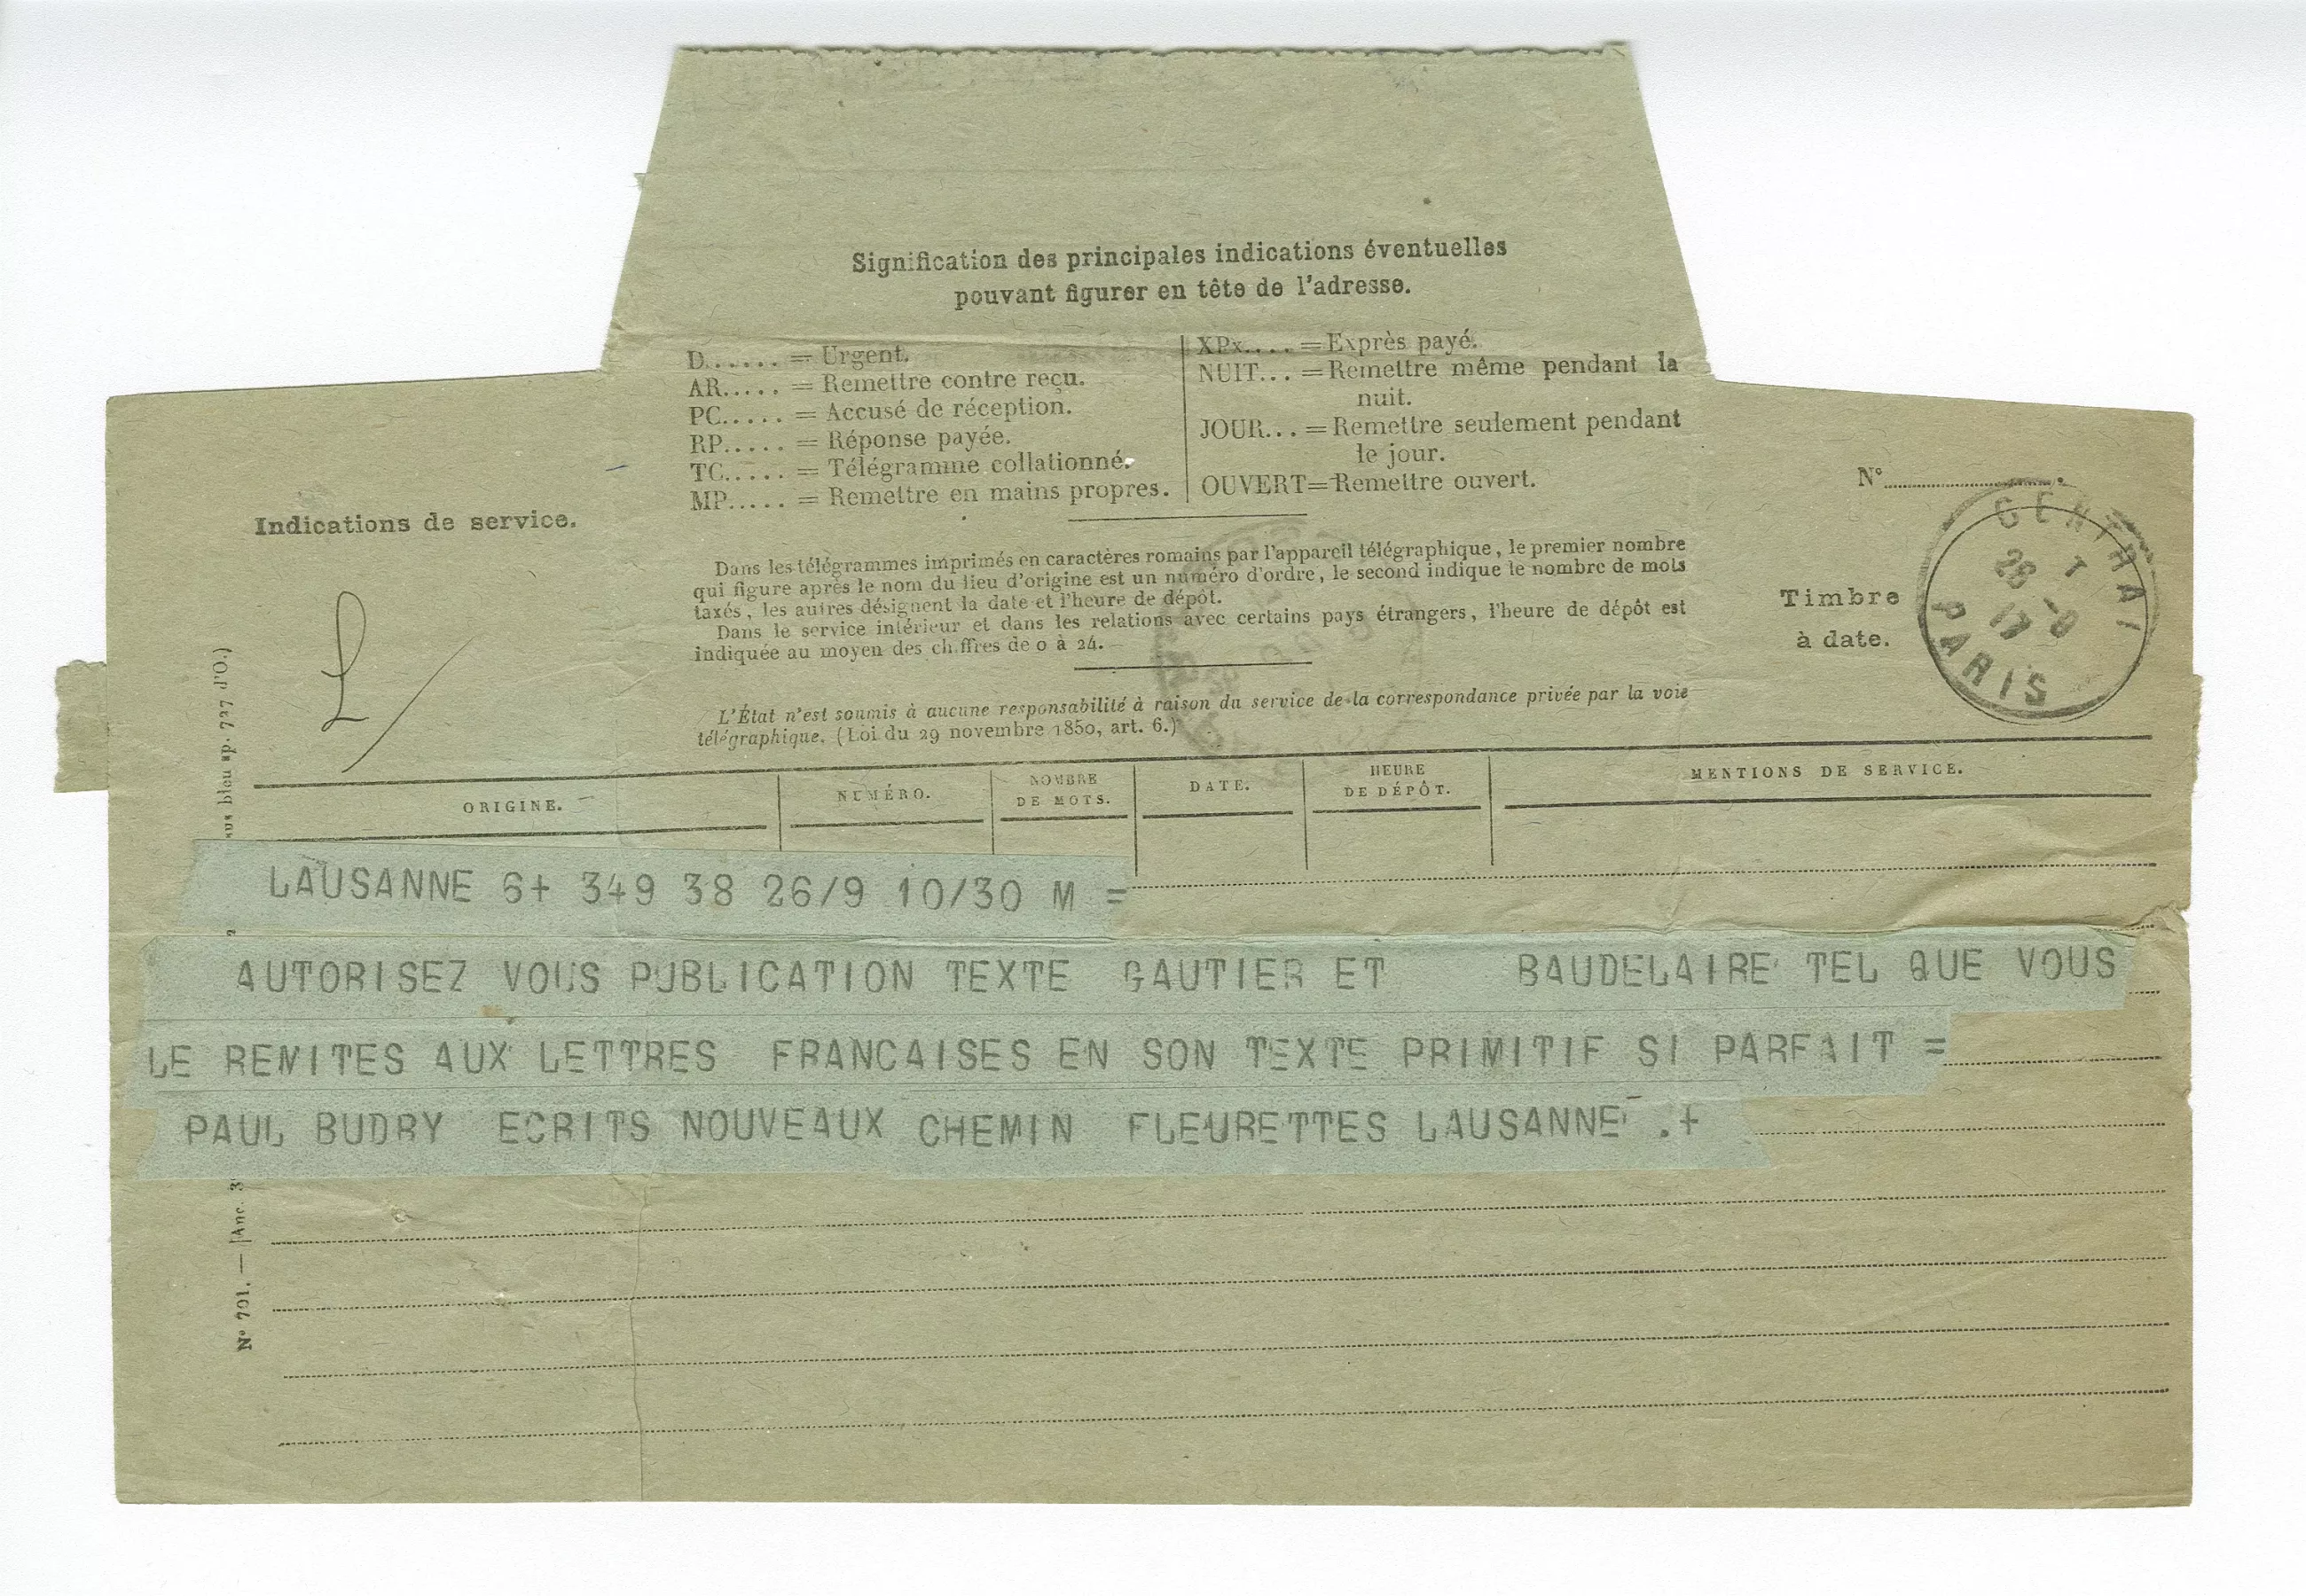 Signification des principales indications éventuelles
pouvant figurer en tête de l'adresse.
D...... = Urgent.
AR..... = Remettre contre reçu.
PC..... = Accusé de réception.
RP..... = Réponse payée.
TC..... = Télégramme collationné.
MP..... = Remettre en mains propres.
XPx.... = Exprès payé.
NUIT... = Remettre même pendant la
nuit.
JOUR... = Remettre seulement pendant
le jour.
OUVERT = Remettre ouvert.
N°
Indications de service.
Dans les télégrammes imprimés en caractères romains par l'appareil télégraphique, le premier nombre
qui figure après le nom du lieu d'origine est un numéro d'ordre, le second indique le nombre de mots
taxés, les autres désignent la date et l'heure de dépôt.
Dans le service intérieur et dans les relations avec certains pays étrangers, l'heure de dépôt est
indiquée au moyen des chiffres de 0 à 24.
Timbre
à date.
CENTRAL
PARIS
L'État n'est soumis à aucune responsabilité à raison du service de la correspondance privée par la voie
télégraphique. (Loi du 29 novembre 1850, art. 6.)
ORIGINE.
NUMÉRO.
NOMBRE
DE MOTS.
DATE.
HEURE
DE DÉPÔT.
MENTIONS DE SERVICE.
LAUSANNE 6+ 349 38 26/9 10/30 M =
AUTORISEZ VOUS PUBLICATION TEXTE GAUTIER ET BAUDELAIRE TEL QUE VOUS
LE REMITES AUX LETTRES FRANCAISES EN SON TEXTE PRIMITIF SI PARFAIT =
PAUL BUDRY ECRITS NOUVEAUX CHEMIN FLEURETTES LAUSANNE .+
N° 701. — [Anc. 3
bleu sp. 727 d'O.)